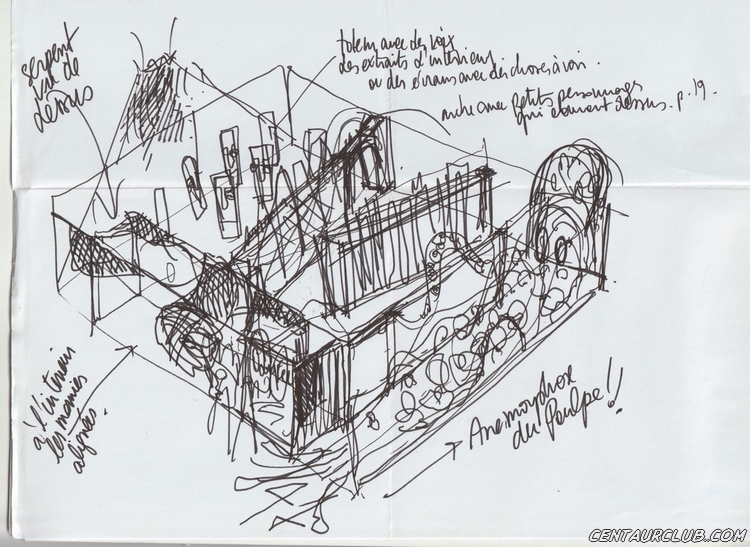 serpent
vu de
dessus
totem avec des voix
des extraits d'intérieur
ou des écrans avec des choses à voir.
niche avec petits personnages
qui courent dessus. p. 19.
à l'intérieur
les momies
alignées.
Anamorphose
du Poulpe!!
CENTAURCLUB.COM